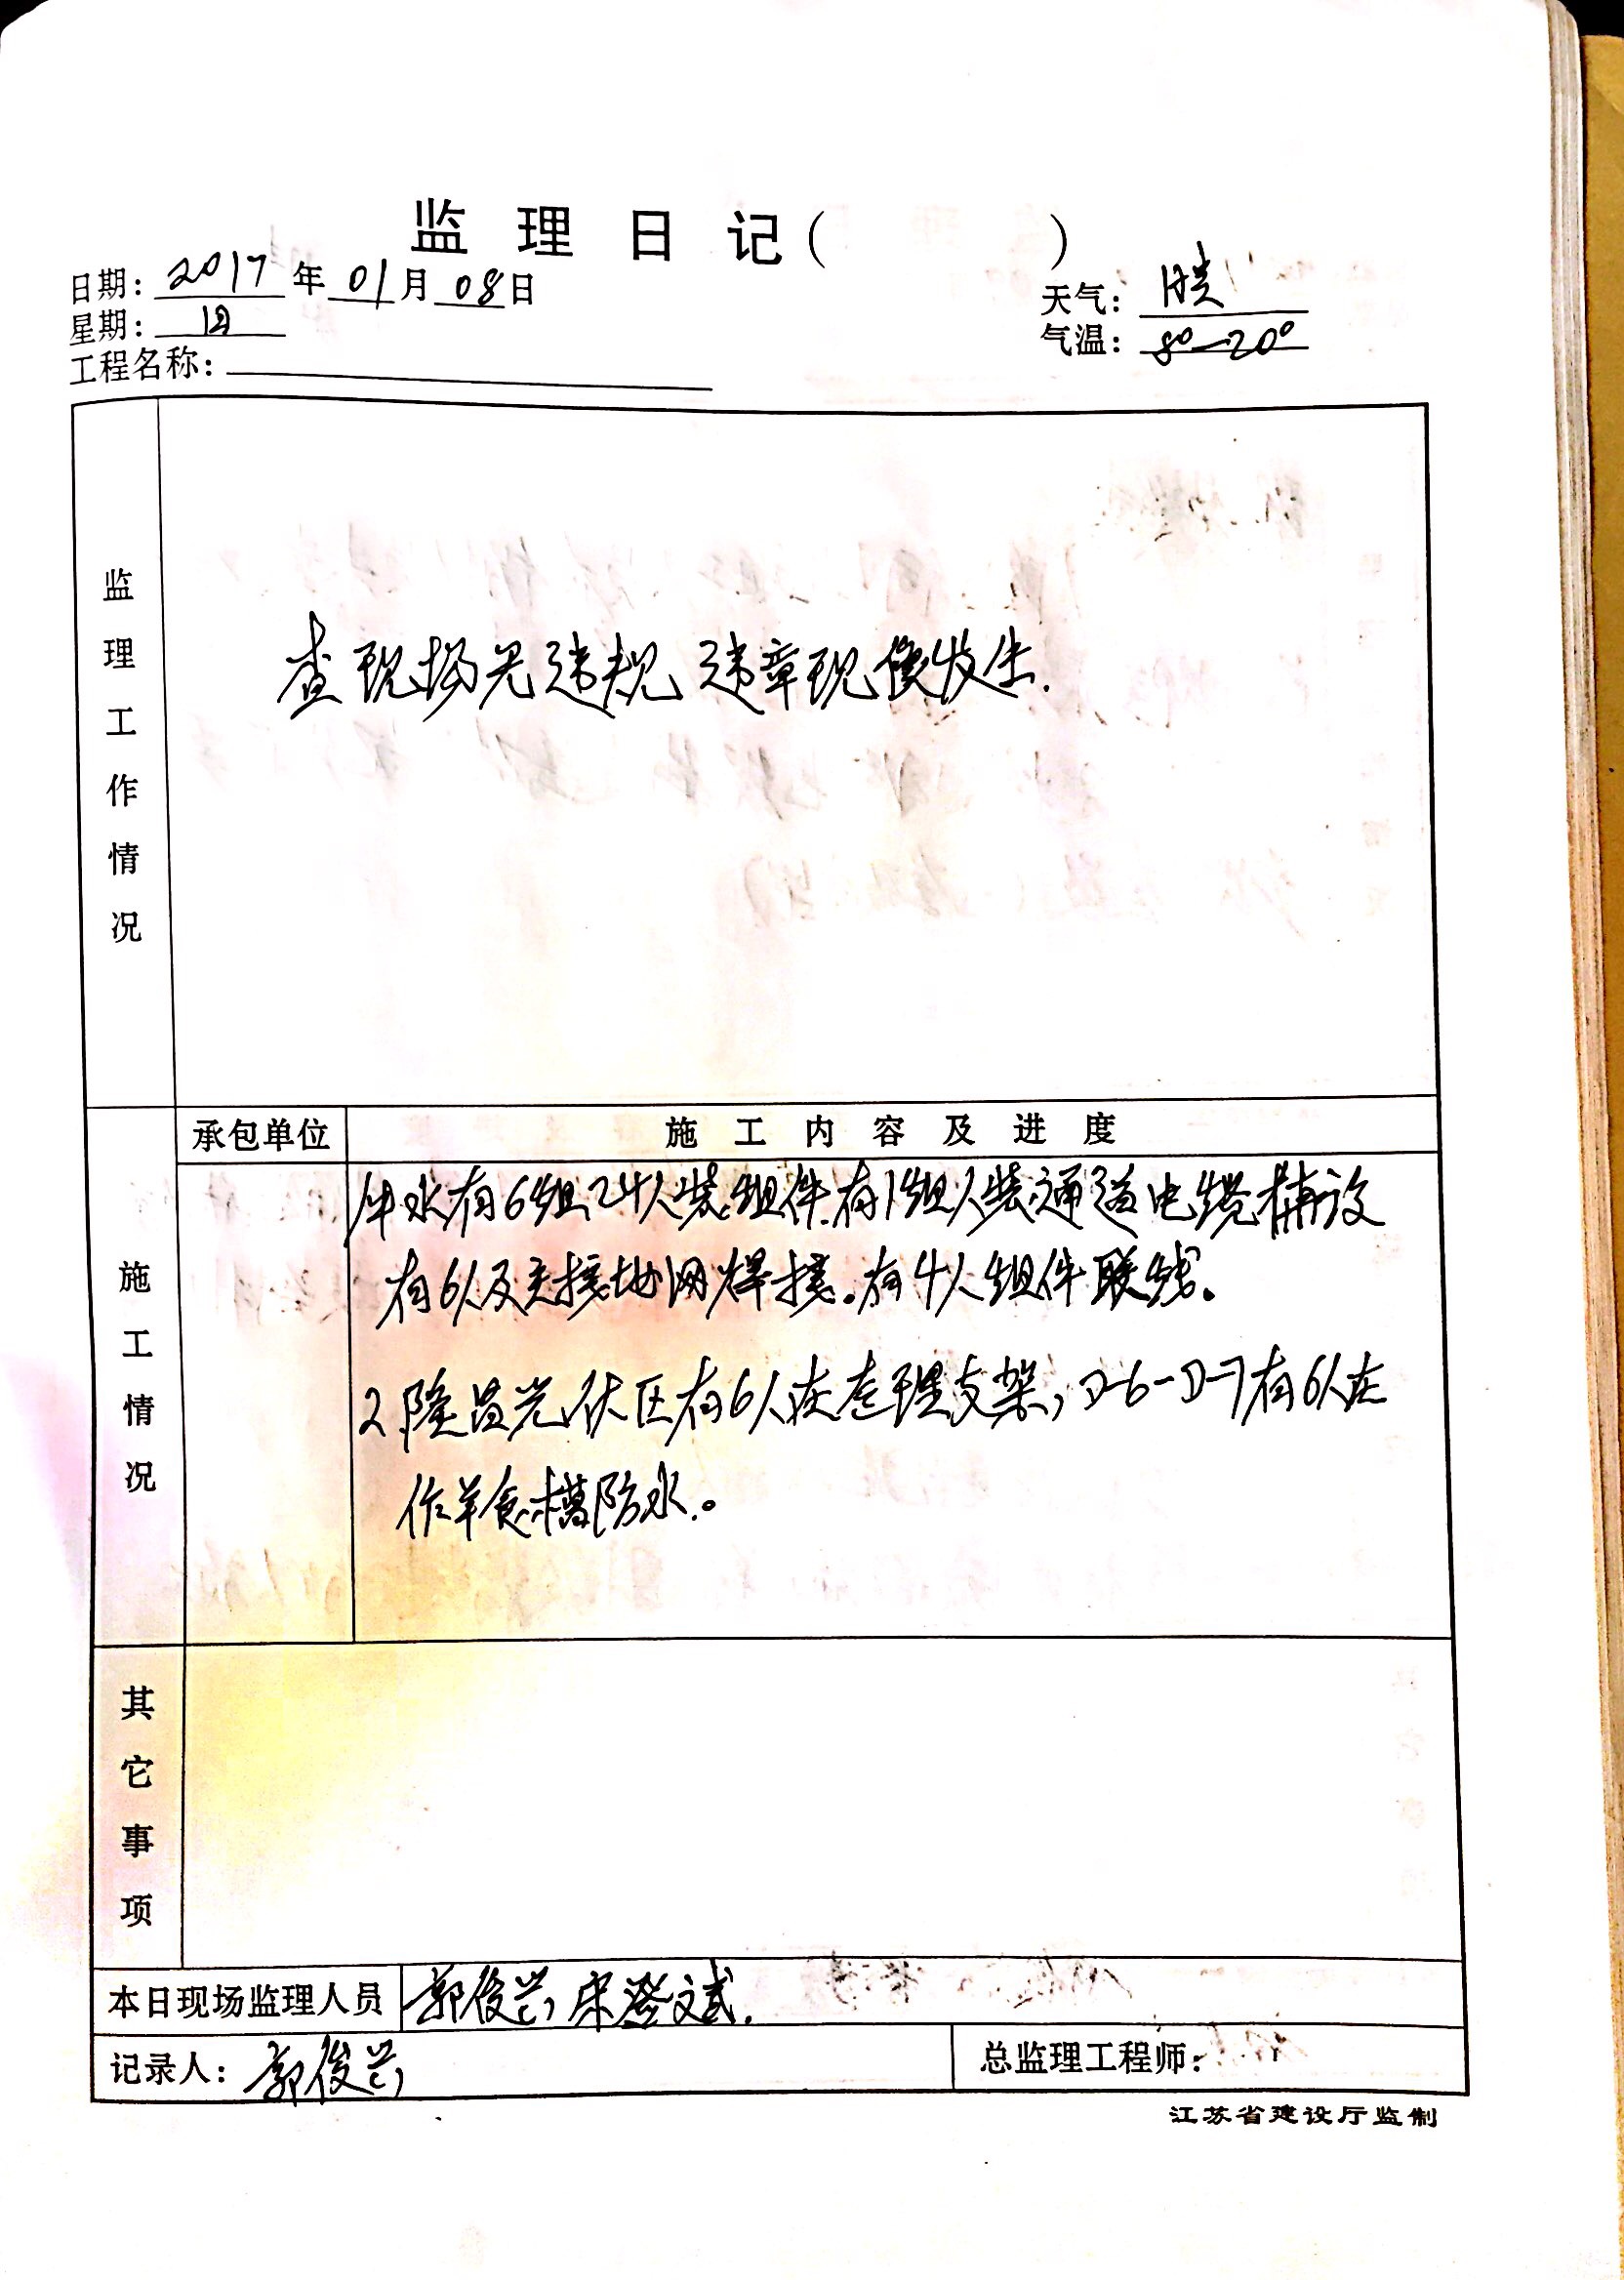 监理日记（ ）
日期：2017年01月08日
星期：日
天气：
气温：8°—20°
工程名称：
监理工作情况
查现场无违规违章现像发生.
承包单位
施工内容及进度
施工情况
水有6组24人装组件.有1组人装通道电缆辅放
有6人及支接地网焊接。有4人组件联线。
2.隆昌光伏区有6人在查理支架，D-6-D-7有6人在
作羊食槽防水。
其它事项
本日现场监理人员 郭俊兴 宋登文武.
记录人：郭俊兴
总监理工程师：
江苏省建设厅监制